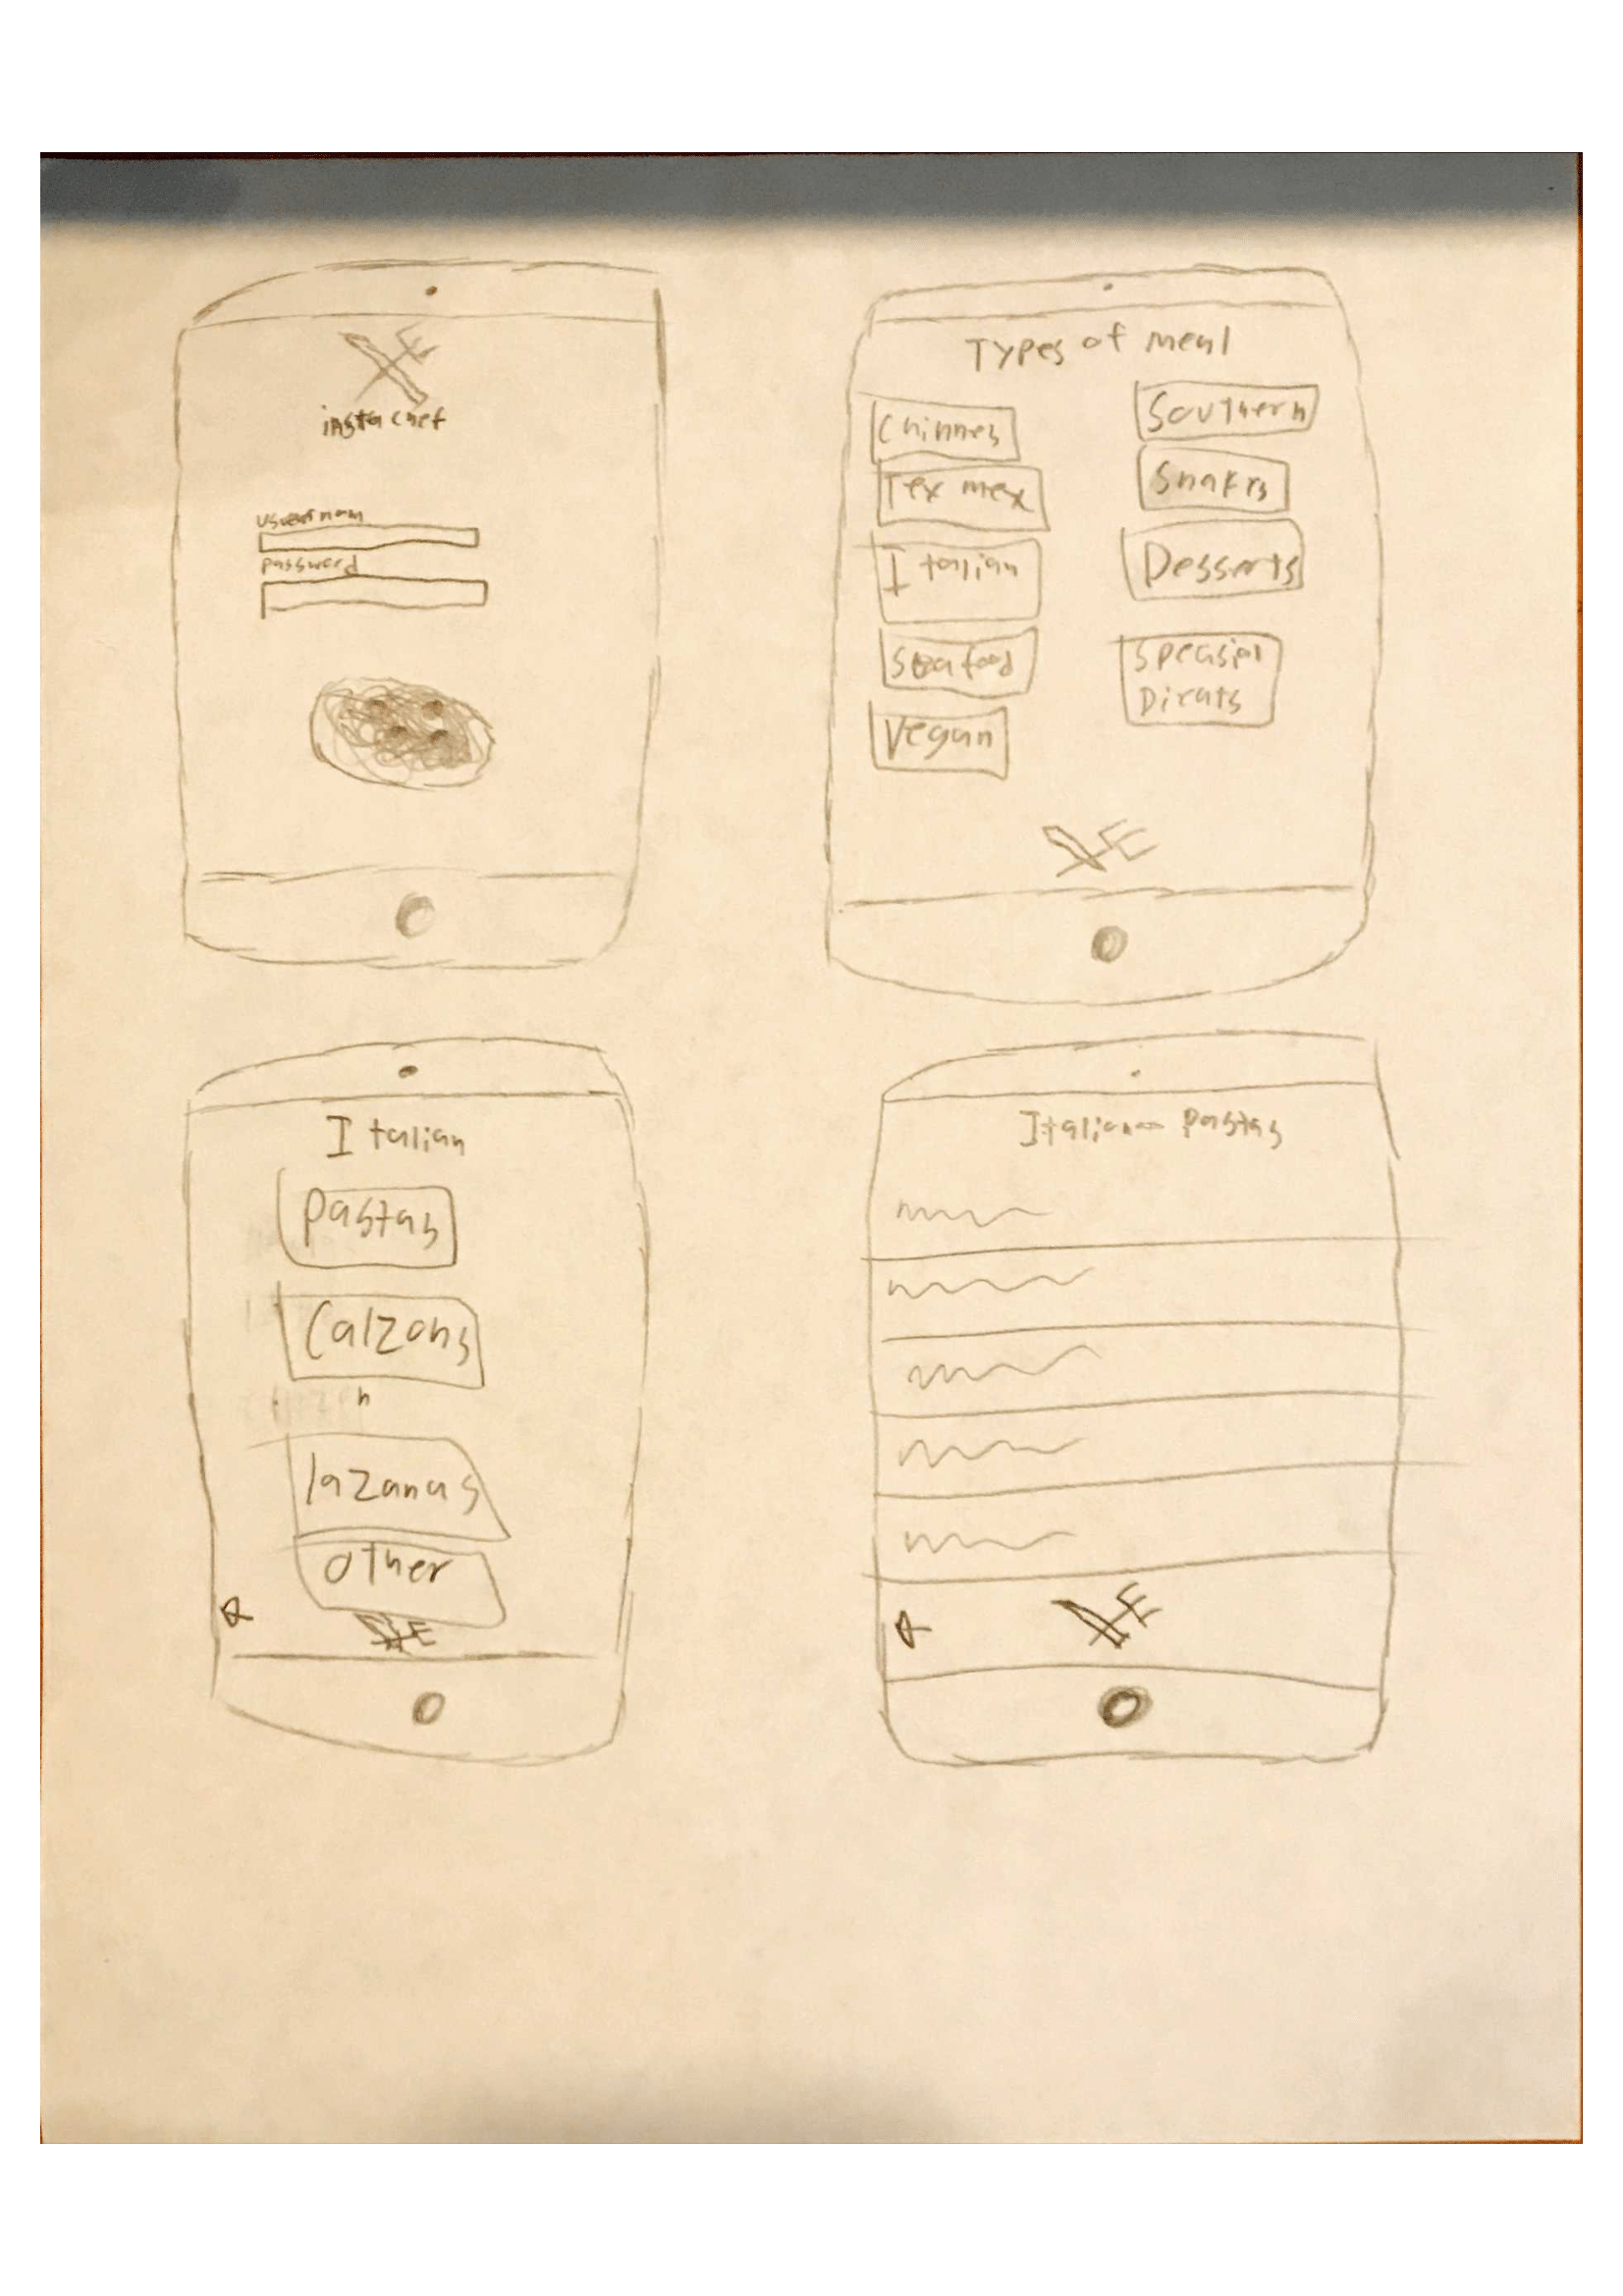 insta chef
usernam
password
Types of meal
Chinnes
Tex mex
Italian
Seafood
Vegan
Southern
Snakes
Desserts
Speasial
Dieats
Italian
Pastas
Calzons
n
lazanas
other
Italian Pastas